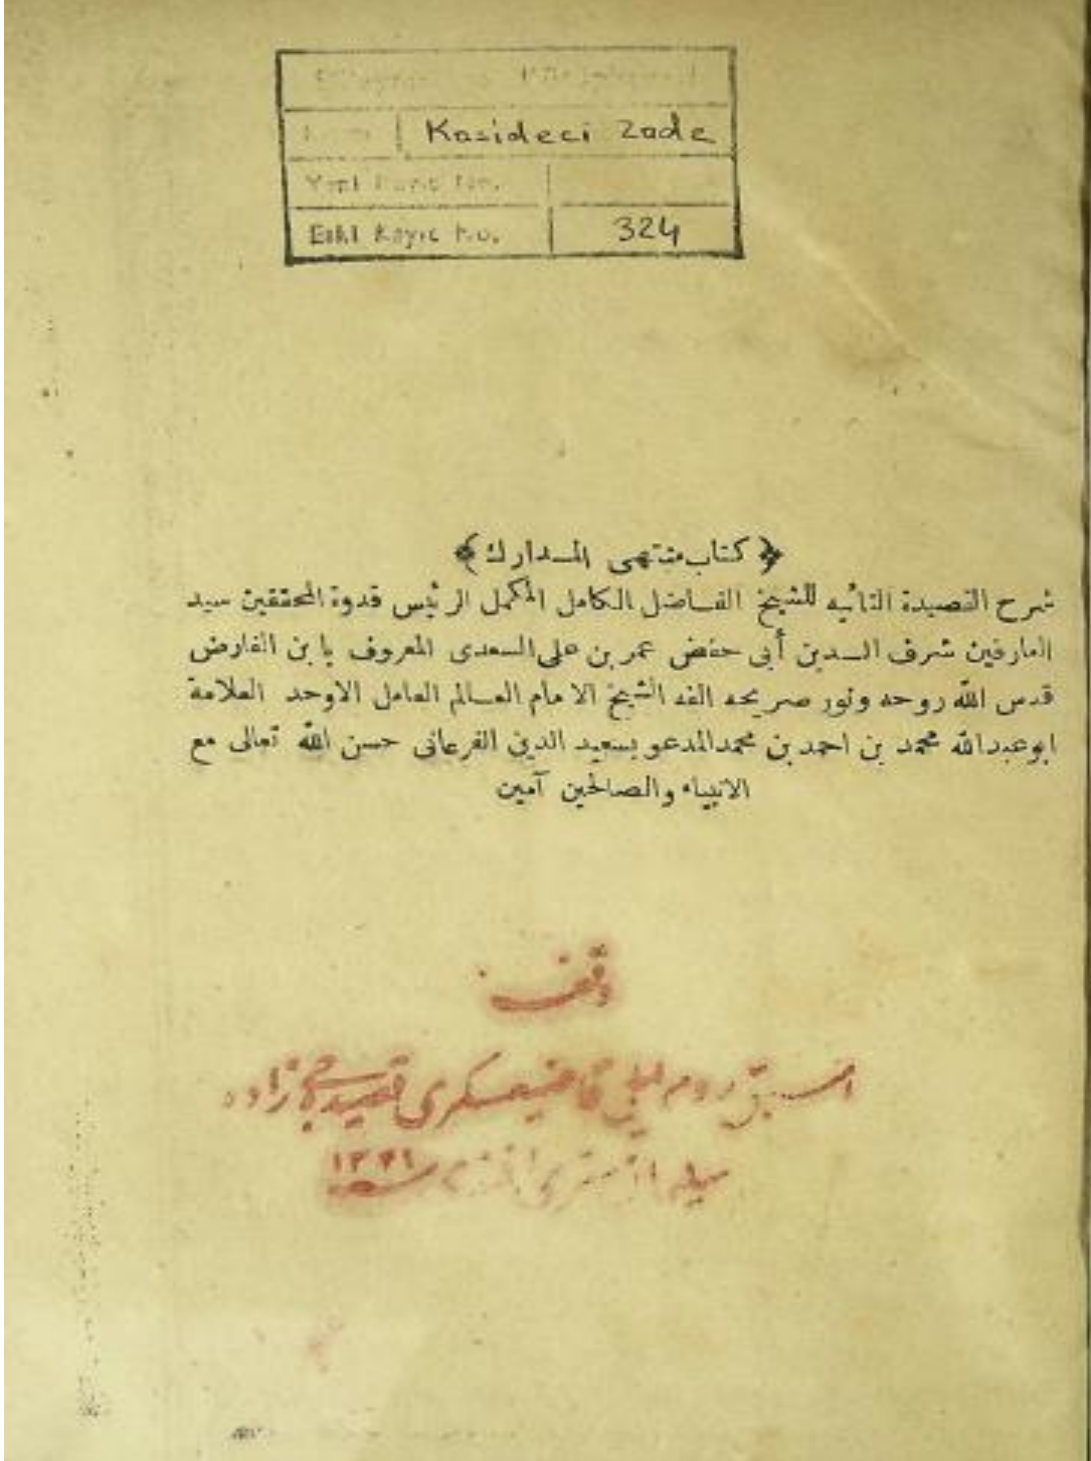 Kasideci Zade
Eski Kayıt No. 324
﴿ كتاب منتهى المدارك ﴾
شرح القصيدة التائيه للشيخ الفاضل الكامل المكمل الرئيس قدوة المحققين سيد
العارفين شرف الدين أبى حفض عمر بن على السعدى المعروف بابن الفارض
قدس الله روحه ونور صريحه الفه الشيخ الامام العالم العامل الاوحد العلامة
ابوعبدالله محمد بن احمد بن محمدالمدعو بسعيد الدين الفرعانى حسن الله تعالى مع
الانبياء والصالحين آمين
وقف
اسبق روم ايلى قاضيعسكرى قصيده جى زاده